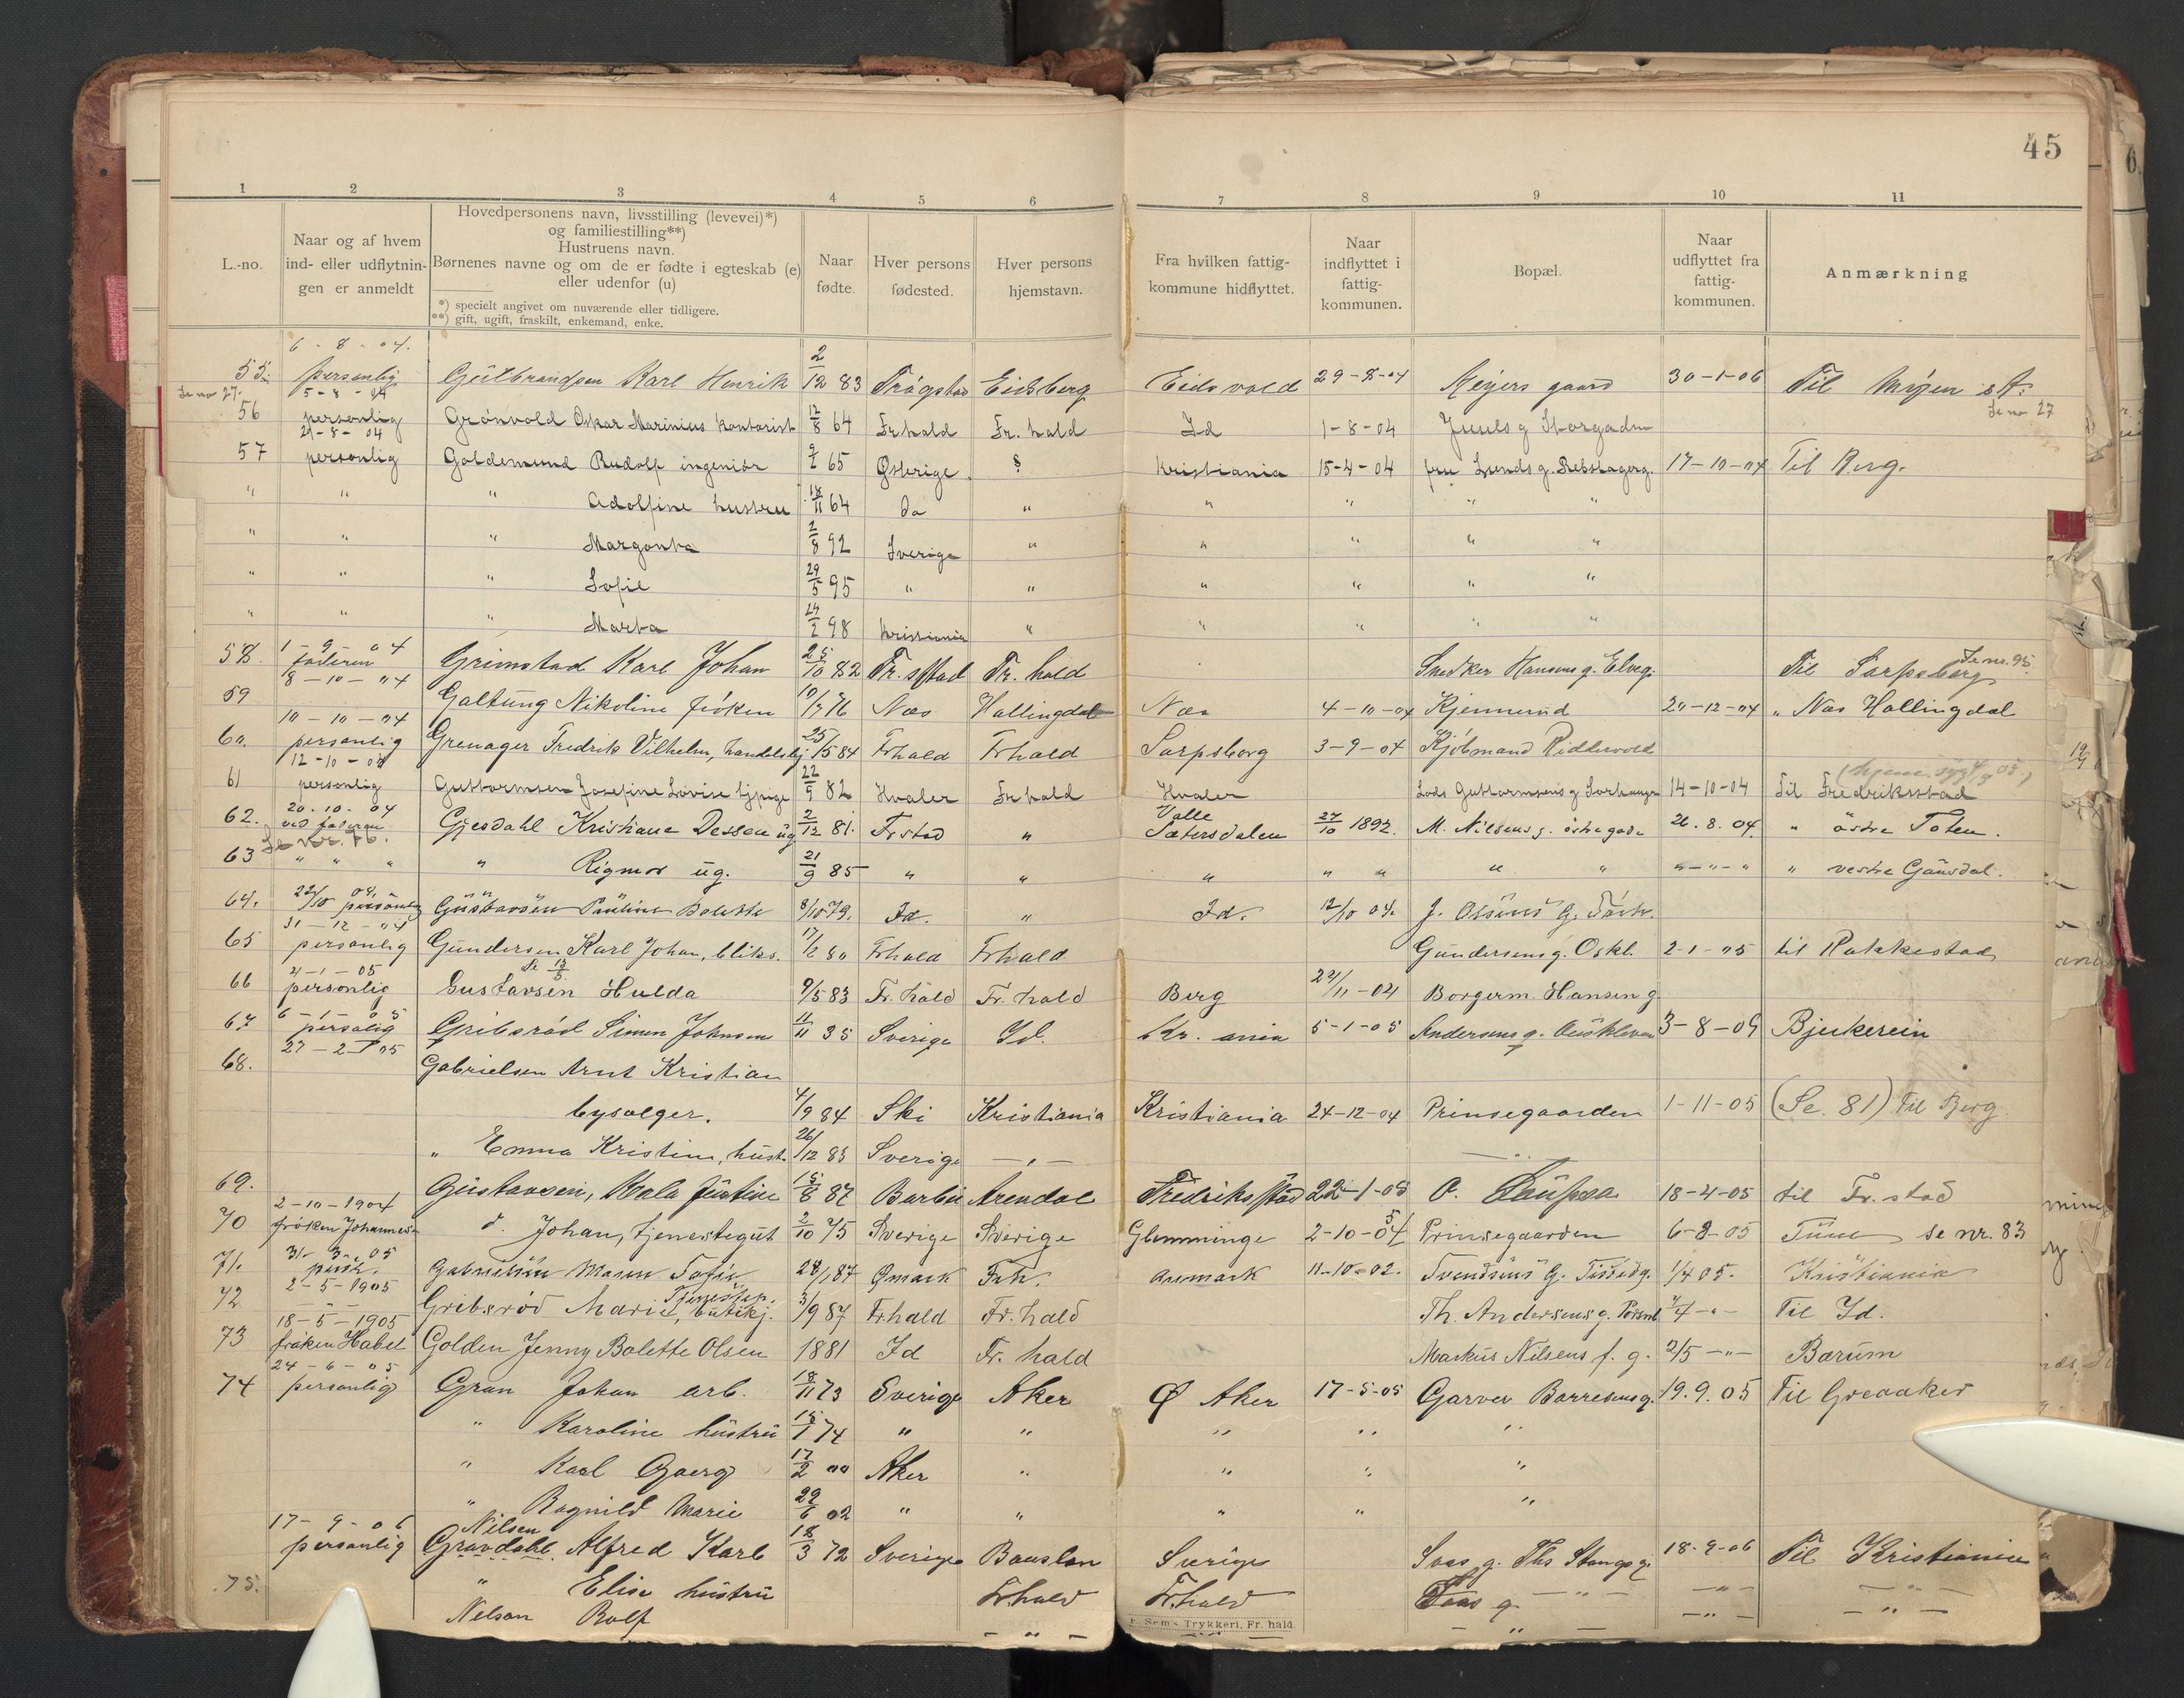 45
1 2 3 4 5 6 7 8 9 10 11
L.-no.
Naar og af hvem
ind- eller udflytnin-
gen er anmeldt
Hovedpersonens navn, livsstilling (levevei)*)
og familiestilling**)
Hustruens navn.
Børnenes navne og om de er fødte i egteskab (e)
eller udenfor (u)
*) specielt angivet om nuværende eller tidligere.
**) gift, ugift, fraskilt, enkemand, enke.
Naar
fødte.
Hver persons
fødested.
Hver persons
hjemstavn.
Fra hvilken fattig-
kommune hidflyttet.
Naar
indflyttet i
fattig-
kommunen.
Bopæl.
Naar
udflyttet fra
fattig-
kommunen.
Anmærkning
6-8-04.
55. personlig Gulbrandsen Karl Henrik 2/12 83 Trøgstad Eidsberg Eidsvold 29-8-04 Meyers gaard 30-1-06 Til Mysen st.
Se no 27. 5-8-04 Se no 27
56 personlig Grønvold Oskar Marinius kontorist 12/8 64 Fr.hald Fr. hald Id 1-8-04 Juuls g Storgaden
29-8-04
57 personlig Goldemund Rudolf ingeniør 65 Østerige ? Kristiania 15-4-04 fru Lunds g. Rebslagerg. 17-10-04 Til Berg.
" " " Adolfine hustru 18/11 64 Do " " " " "
" " " 2/8 92 Sverige " " " " "
" " " Sofie 29/5 95 " " " " " "
" " " Marta 98 Kristiania " " " " "
1-9-04
58. faderen Grimstad Karl Johan 25/10 82 Fr.stad Fr. hald Snedker Hansens g. Elveg. Til Sarpsborg Se nr. 95.
8-10-04
59 Galtung Nikoline frøken 10/7 76 Næs Hallingdal Næs 4-10-04 Kjennerud 20-12-04 " Næs Hallingdal
10-10-04
60. personlig Grenager Fredrik Vilhelm, handelsbj 25/5 84 Frhald Frhald Sarpsborg 3-9-04 Kjøbmand Riddervold
12-10-04
61 personlig Guttormsen Josefine Lovise tjpige 22/9 82 Hvaler Fr hald Hvaler Lods Guttormsens g 14-10-04 Til Fredriksstad
20-10-04
62. ved faderen Gjesdahl Kristiane Dessen ug 2/12 81. Frstad " Valle Sætersdalen 27/10 1892. M. Nilsens g. østregade 26.8.04. " østre Toten.
Se nr. 76.
63 " " " " Rigmor ug. 21/9 85 " " " " " " " " " " " vestre Gausdal.
64. 22/10 04. personlig Gustavsen Pauline Bolette 8/10 79. Id. " Id. 12/10 04. J. Olsens G.
31-12-04
65 personlig Gundersen Karl Johan, bliks. 17/2 80 Frhald Frhald Gundersens g. Oskl. 2-1-05 til Rakkestad
4-1-05
66 personlig Gustavsen Hulda 9/5 83 Fr. hald Fr. hald Berg 22/11-04 Borgerm. Hansen g.
6-1-05
67 personlig Gribsrød Simen Johnsen 11/11 35 Sverige Id. Kr.ania 5-1-05 Andersens g. 3-8-09 Bjerkerein
27-2-05
68. Gabrielsen Arnt Kristian
bysælger. 4/9 84 Ski Kristiania Kristiania 24-12-04 Prinsegaarden 1-11-05 (Se. 81) Til Berg
" Emma Kristine, hust. 26/12 83 Sverige — " —
69. Gustavsen, Kala Justine 15/8 87 Barbu Arendal Fredriksstad 22-1-05 O. 18-4-05 til Fr. stad
2-10-1904
70 frøken Johannesen d. Johan, tjenestegut 2/10 75 Sverige Sverige Glemminge 2-10-04 Prinsegaarden 6-8-05 Tune se nr. 83
31-3-05
71. persl. Gabrielsen Maren Sofie 28/1 87 Ømark Frh. Aremark 11-10-02. Svendsens G. Tistedg. 1/4 05. Kristiania
2-5-1905
72 — " — Gribsrød Marie, Tjenestep. butikj. 3/9 87 Fr.hald Fr. hald Th. Andersens g. 4 - " - Til Id.
18-5-1905
73 frøken Habel Golden Jenny Bolette Olsen 1881 Id Fr. hald Markus Nilsens f. g. 2/5 — " — Bærum
24-6-05
74 personlig Gran Johan arb. 18/11 73 Sverige Aker Ø Aker 17-5-05 Garver Borresens g. 19.9.05 Til Greaaker
" Karoline hustru 15/1 74 " " " " "
" Karl Georg 17/2 00 Aker " " " "
" Ragnild Marie 22/6 02 " " " " "
17-9-06 Nilsen
personlig Gravdahl Alfred Karl 18/3 72 Sverige Sverige Svaes g. Ths Stangs g. 18-9-06 Til Kristiania
75. " Elise hustru Frhald Frhald g. — " — — " — — " —
Nelson Rolf — " — — " — — " — — " —
E. Sem's Trykkeri, Fr.hald.